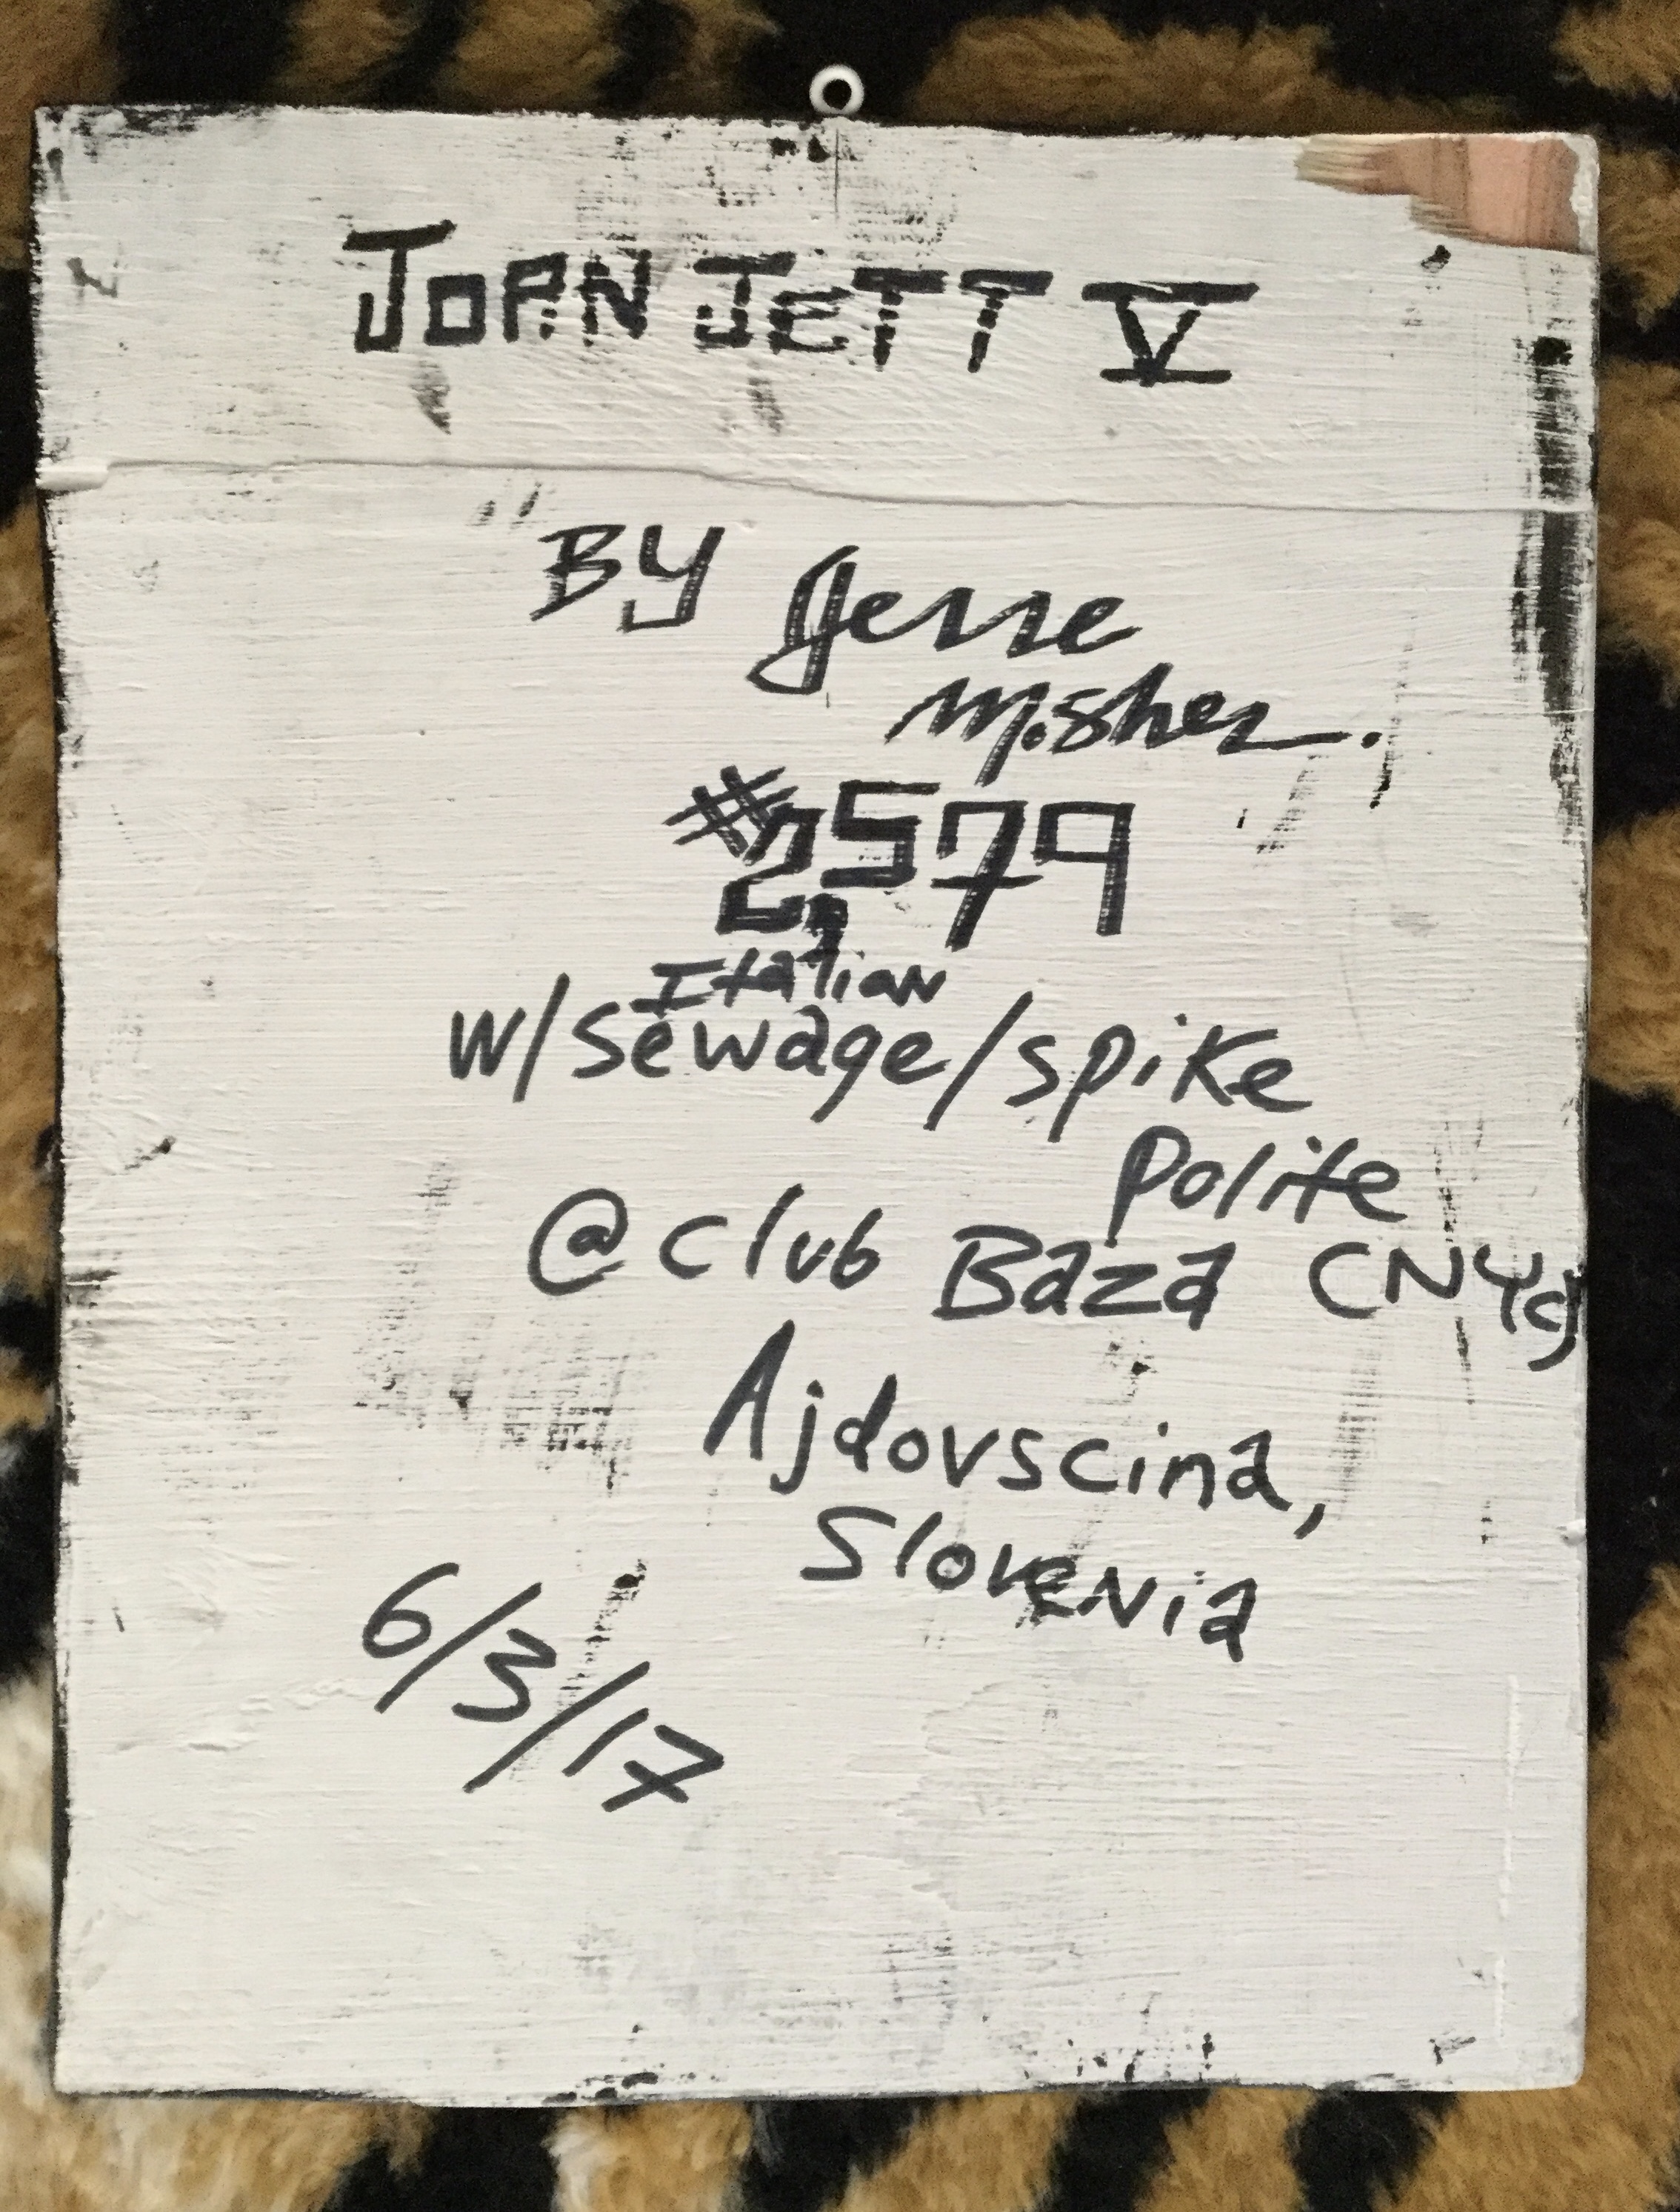 JOAN JETT V
"BY Jesse
Mosher.
#2,579
Italian
w/sewage/spike
Polite
@ club Baza
Ajdovscina,
Slovenia
6/3/17